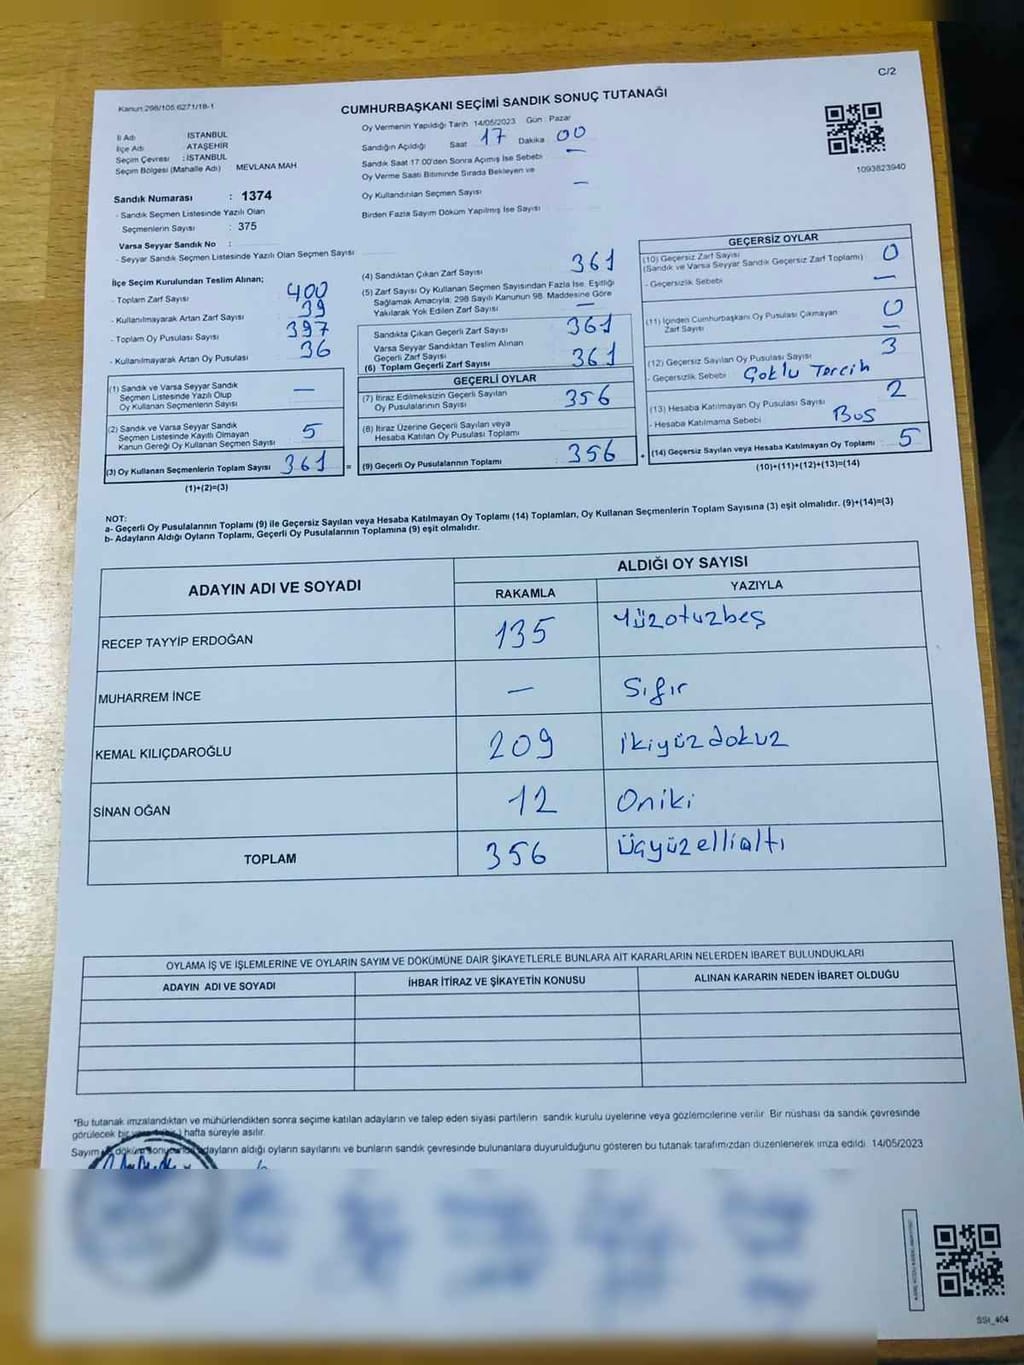 C/2
Kanun:298/105.6271/18-1
CUMHURBAŞKANI SEÇİMİ SANDIK SONUÇ TUTANAĞI
İl Adı : İSTANBUL
İlçe Adı : ATAŞEHİR
Seçim Çevresi : İSTANBUL
Seçim Bölgesi (Mahalle Adı) MEVLANA MAH
Sandık Numarası : 1374
- Sandık Seçmen Listesinde Yazılı Olan
Seçmenlerin Sayısı : 375
Varsa Seyyar Sandık No :
- Seyyar Sandık Seçmen Listesinde Yazılı Olan Seçmen Sayısı
Oy Vermenin Yapıldığı Tarih 14/05/2023 Gün : Pazar
Sandığın Açıldığı Saat 17 Dakika 00
Sandık Saat 17:00'den Sonra Açımış İse Sebebi —
Oy Verme Saati Bitiminde Sırada Bekleyen ve
Oy Kullandırılan Seçmen Sayısı —
Birden Fazla Sayım Döküm Yapılmış İse Sayısı
1093823940
İlçe Seçim Kurulundan Teslim Alınan;
- Toplam Zarf Sayısı 400
- Kullanılmayarak Artan Zarf Sayısı 39
- Toplam Oy Pusulası Sayısı 397
- Kullanılmayarak Artan Oy Pusulası 36
(1) Sandık ve Varsa Seyyar Sandık
Seçmen Listesinde Yazılı Olup
Oy Kullanan Seçmenlerin Sayısı —
(2) Sandık ve Varsa Seyyar Sandık
Seçmen Listesinde Kayıtlı Olmayan
Kanun Gereği Oy Kullanan Seçmen Sayısı 5
(3) Oy Kullanan Seçmenlerin Toplam Sayısı 361
(1)+(2)=(3)
(4) Sandıktan Çıkan Zarf Sayısı 361
(5) Zarf Sayısı Oy Kullanan Seçmen Sayısından Fazla İse, Eşitliği
Sağlamak Amacıyla, 298 Sayılı Kanunun 98. Maddesine Göre
Yakılarak Yok Edilen Zarf Sayısı —
Sandıkta Çıkan Geçerli Zarf Sayısı 361
Varsa Seyyar Sandıktan Teslim Alınan
Geçerli Zarf Sayısı
(6) Toplam Geçerli Zarf Sayısı 361
GEÇERLİ OYLAR
(7) İtiraz Edilmeksizin Geçerli Sayılan
Oy Pusulalarının Sayısı 356
(8) İtiraz Üzerine Geçerli Sayılan veya
Hesaba Katılan Oy Pusulası Toplamı
= (9) Geçerli Oy Pusulalarının Toplamı 356
GEÇERSİZ OYLAR
(10) Geçersiz Zarf Sayısı
(Sandık ve Varsa Seyyar Sandık Geçersiz Zarf Toplamı) 0
- Geçersizlik Sebebi —
(11) İçinden Cumhurbaşkanı Oy Pusulası Çıkmayan
Zarf Sayısı 0
—
(12) Geçersiz Sayılan Oy Pusulası Sayısı 3
- Geçersizlik Sebebi Çoklu Tercih
(13) Hesaba Katılmayan Oy Pusulası Sayısı 2
- Hesaba Katılmama Sebebi Boş
+ (14) Geçersiz Sayılan veya Hesaba Katılmayan Oy Toplamı 5
(10)+(11)+(12)+(13)=(14)
NOT:
a- Geçerli Oy Pusulalarının Toplamı (9) ile Geçersiz Sayılan veya Hesaba Katılmayan Oy Toplamı (14) Toplamları, Oy Kullanan Seçmenlerin Toplam Sayısına (3) eşit olmalıdır. (9)+(14)=(3)
b- Adayların Aldığı Oyların Toplamı, Geçerli Oy Pusulalarının Toplamına (9) eşit olmalıdır.
ADAYIN ADI VE SOYADI
ALDIĞI OY SAYISI
RAKAMLA YAZIYLA
RECEP TAYYİP ERDOĞAN 135 Yüzotuzbeş
MUHARREM İNCE — Sıfır
KEMAL KILIÇDAROĞLU 209 ikiyüzdokuz
SİNAN OĞAN 12 Oniki
TOPLAM 356 Üçyüzellialtı
OYLAMA İŞ VE İŞLEMLERİNE VE OYLARIN SAYIM VE DÖKÜMÜNE DAİR ŞİKAYETLERLE BUNLARA AİT KARARLARIN NELERDEN İBARET BULUNDUKLARI
ADAYIN ADI VE SOYADI İHBAR İTİRAZ VE ŞİKAYETİN KONUSU ALINAN KARARIN NEDEN İBARET OLDUĞU
*Bu tutanak imzalandıktan ve mühürlendikten sonra seçime katılan adayların ve talep eden siyasi partilerin sandık kurulu üyelerine veya gözlemcilerine verilir. Bir nüshası da sandık çevresinde
görülecek bir hafta süreyle asılır.
Sayım döküm adayların aldığı oyların sayılarını ve bunların sandık çevresinde bulunanlara duyurulduğunu gösteren bu tutanak tarafımızdan düzenlenerek imza edildi. 14/05/2023
SSt_404